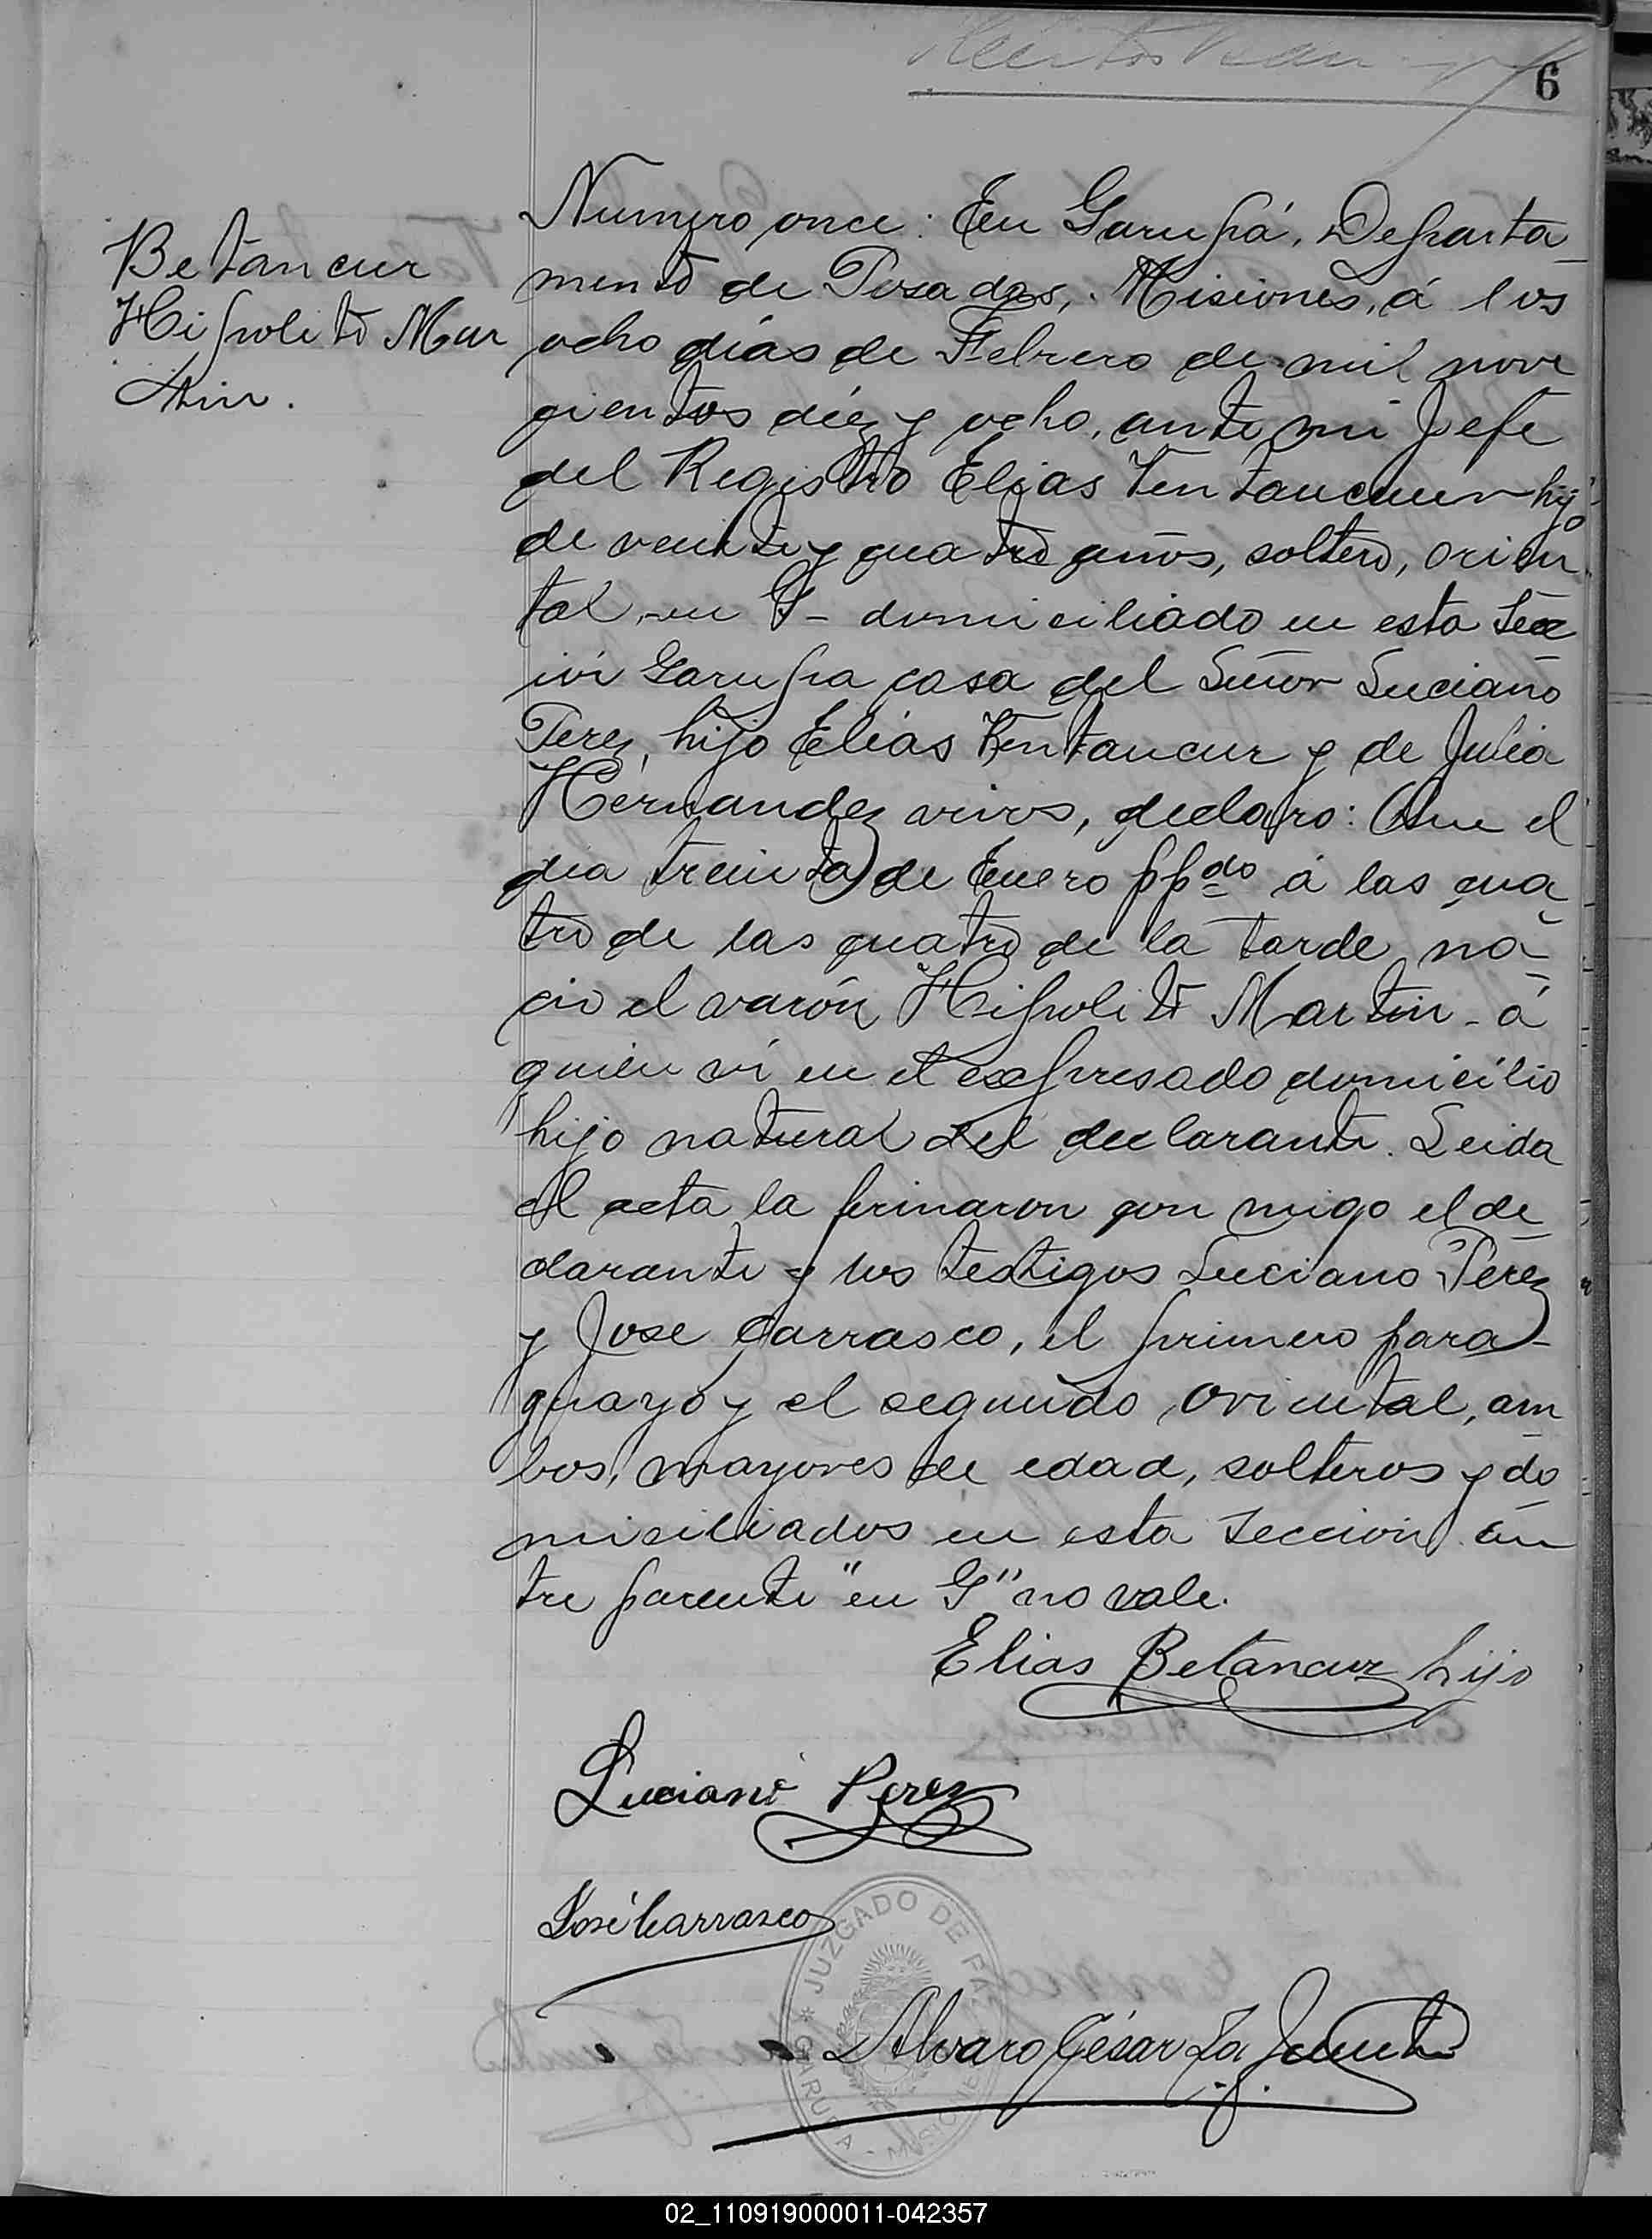 6
Betancur
Hipolito Mar
tin.
Numero once: En Garupá, Departa
mento de Posadas, Misiones, á los
ocho días de Febrero de mil nove
cientos diéz y ocho, ante mi Jefe
del Registro Elias Ventancur hijo
de veinte y cuatro años, soltero, orien
tal, en G - domiciliado en esta Sec
ión Garupa casa del Señor Luciano
Perez, hijo Elías Ventancur y de Julia
Hernandez vivos, declaro: Que el
dia treinta de Enero ppdo á las cua
tro de las cuatro de la tarde na
cio el varón Hipolito Martin - á
quien ví en el expresado domicilio
hijo natural del declarante. Leida
el acta la firmaron con migo el de
clarante y los testigos Luciano Pérez
y Jose Carrasco, el primero para
guayo y el segundo oriental, am
bos, mayores de edad, solteros y do
misiliados en esta Sección. En
tre parente "en G" no vale.
Elias Betancur hijo
Luciano Perez
José Carrasco
JUZGADO DE PAZ
GARUPA - MISIONES
Alvaro César La
02_110919000011-042357